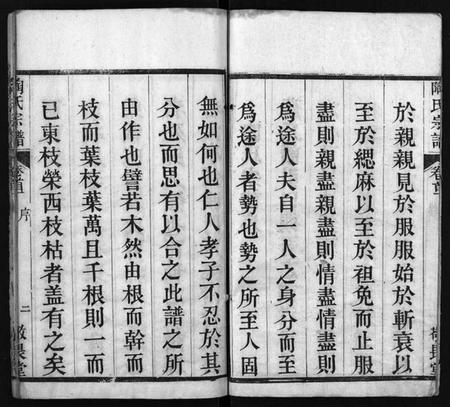 陶氏宗譜
卷首
於親親見於服服始於斬衰以
至於緦麻以至於袒免而止服
盡則親盡親盡則情盡情盡則
為途人夫自一人之身分而至
為途人者勢也勢之所至人固
無如何也仁人孝子不忍於其
分也而思有以合之此譜之所
由作也譬若木然由根而幹而
枝而葉枝葉萬且千根則一而
已東枝榮西枝枯者盖有之矣
陶氏宗譜
卷首
序
二